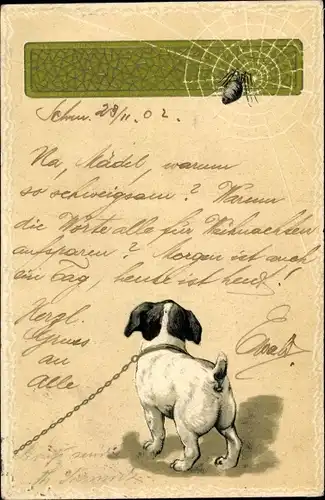 28/11. 02.
Na, Mädel, warum
so schweigsam? Warum
die Worte alle für Weihnachten
aufsparen? Morgen ist auch
ein Tag, heute ist heut!
Herzl.
Gruss
an
Alle
Ewald